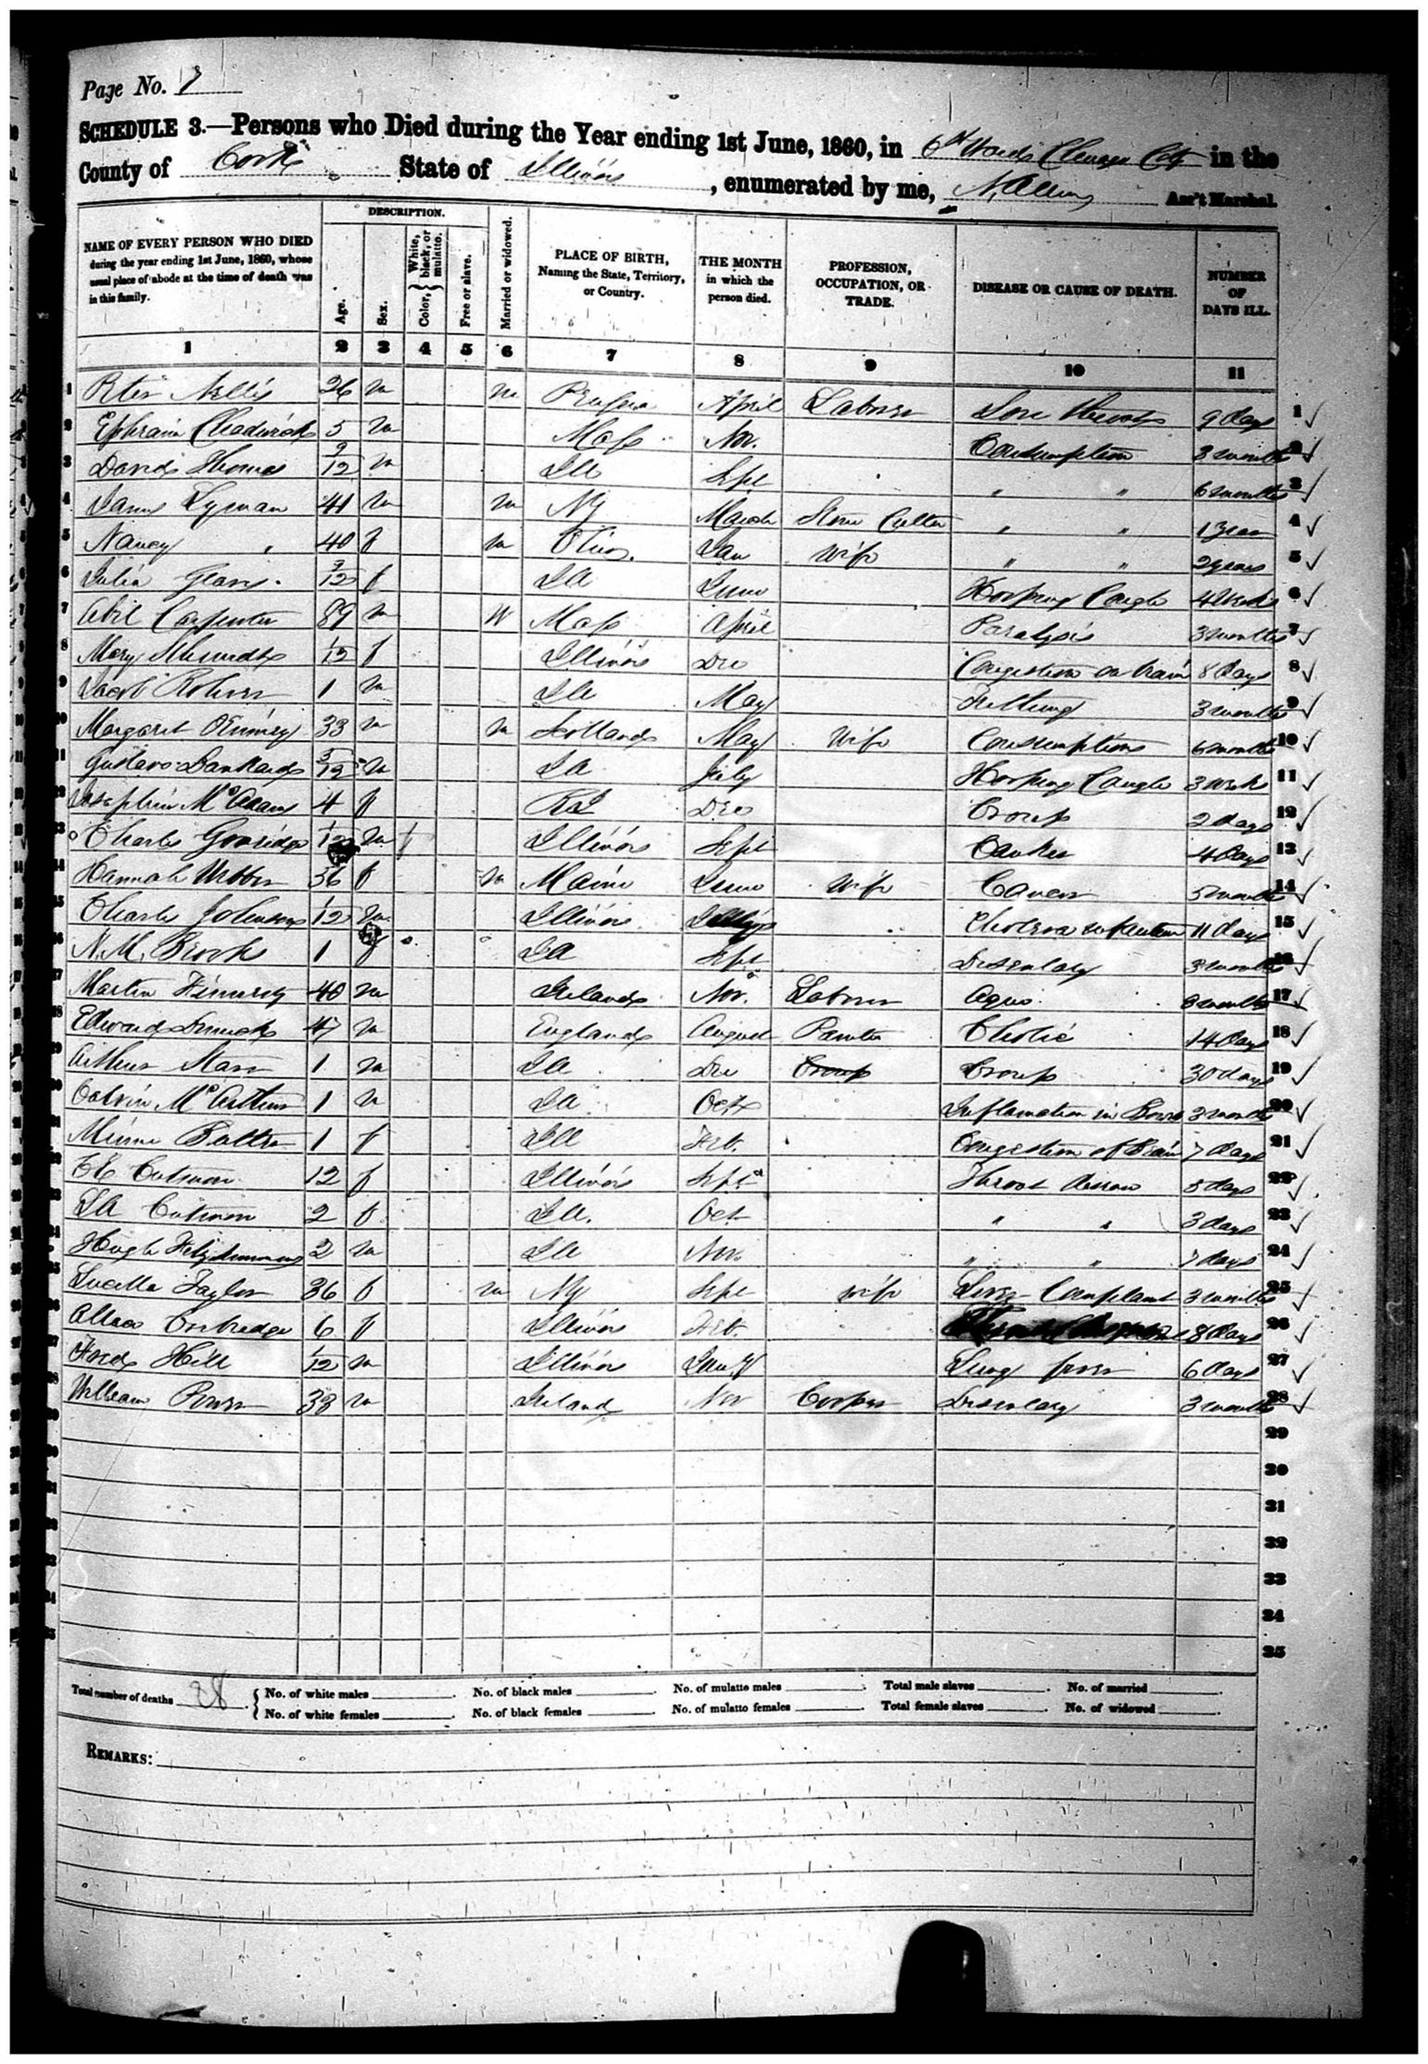 Page No. 7
SCHEDULE 3.—Persons who Died during the Year ending 1st June, 1860, in 6th Ward Chicago City in the
County of Cook State of Illinois, enumerated by me, Ass't Marshal.
DESCRIPTION.
NAME OF EVERY PERSON WHO DIED during the year ending 1st June, 1860, whose usual place of abode at the time of death was in this family.
Age.
Sex.
Color, { White, black, or mulatto.
Free or slave.
Married or widowed.
PLACE OF BIRTH, Naming the State, Territory, or Country.
THE MONTH in which the person died.
PROFESSION, OCCUPATION, OR TRADE.
DISEASE OR CAUSE OF DEATH.
NUMBER OF DAYS ILL.
1 2 3 4 5 6 7 8 9 10 11
1 Peter 26 m m April Laborer Sore Throat 9 days 1
2 Ephraim Chadwick 5 m Mass Nov. Consumption 3 months 2
3 David Thomas 9/12 m Ill Sept " " 6 months 3
4 James Lyman 41 m m NY March Stone Cutter " " 1 year 4
5 Nancy " 40 f m Ohio. Jan Wife " " 2 years 5
6 Julia f Ill June Hooping Cough 4 weeks 6
7 Abil Carpenter 89 m W Mass April Paralysis 3 months 7
8 Mary 1/12 f Illinois Dec Congestion on brain 8 days 8
9 Jacob 1 m Ill May 3 months 9
10 Margaret 33 m m Scotland May Wife Consumption 6 months 10
11 m Ill July Hooping Cough 3 weeks 11
12 Josephine Mc 4 f RI Dec Croup 2 days 12
13 Charles 1/12 m Illinois Sept Canker 4 days 13
14 Hannah Webber 36 f m Maine June Wife Cancer 5 months 14
15 Charles Johnson 1/12 m Illinois Cholera Infantum 11 days 15
16 N. M. Brook 1 f Ill Sept Disentary 3 months 16
17 Martin 40 m Ireland Nov. Laborer Ague 17
18 Edward 47 m England August Painter Cholic 14 days 18
19 Arthur 1 m Ill Dec Croup Croup 30 days 19
20 Calvin McArthur 1 m Ill Oct Inflamation in Bowels 3 months 20
21 1 f Ill Feb. Congestion of Brain 7 days 21
22 12 f Illinois Sept Throat 5 days 22
23 2 f Ill. Oct " " 3 days 23
24 Hugh Fitzsimmons 2 m Ill Nov. " " 7 days 24
25 Lucella Taylor 36 f m NY Sept wife Liver Complaint 3 months 25
26 6 f Illinois Feb. 8 days 26
27 Fred Hill 1/12 m Illinois Jany Lung fever 6 days 27
28 William Power 38 m Ireland Nov Cooper Disentary 3 months 28
29
30
31
32
33
34
35
Total number of deaths 28 { No. of white males No. of black males No. of mulatto males Total male slaves No. of married
No. of white females No. of black females No. of mulatto females Total female slaves No. of widowed
REMARKS: